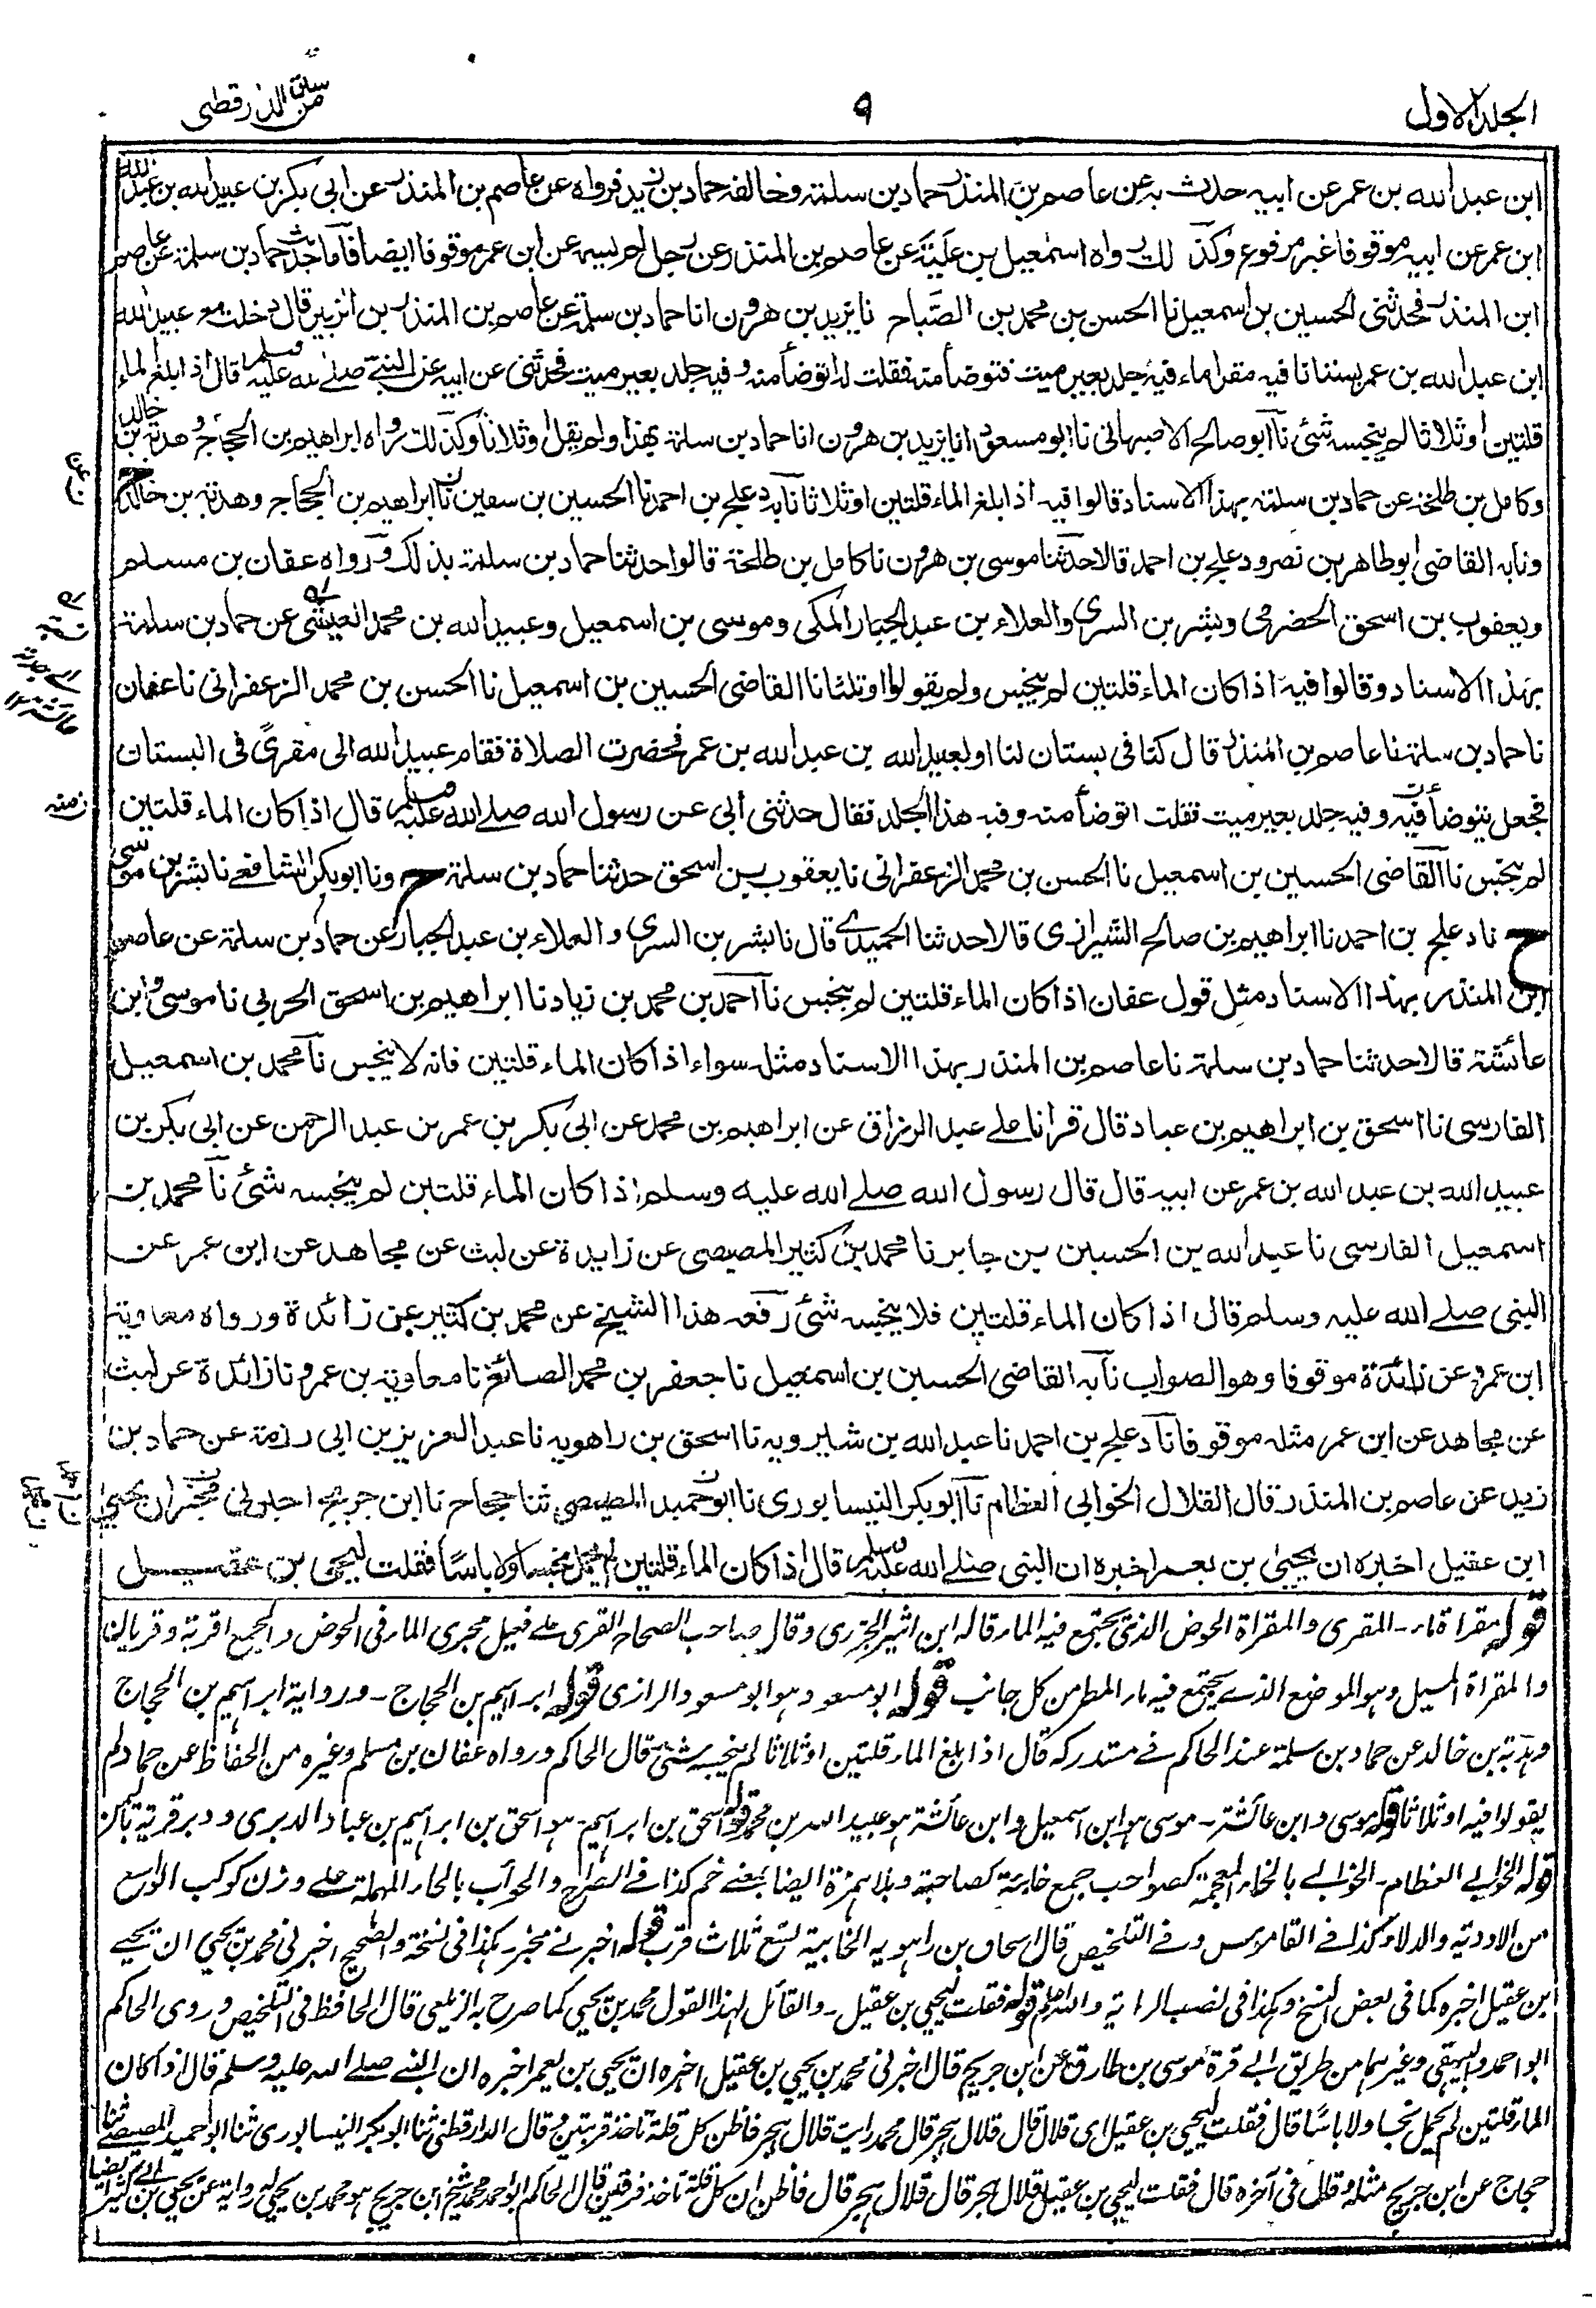 الجلد الاول
٩
من سنن الدارقطني
ابن عبد الله بن عمر عن ابيه حدث به عن عاصم بن المنذر حماد بن سلمة وخالفه حماد بن زيد فرواه عن عاصم بن المنذر عن ابى بكر بن عبيد الله بن عبد الله
ابن عمر عن ابيه موقوفا غير مرفوع وكذلك رواه اسمعيل بن علية عن عاصم بن المنذر عن رجل لم يسمه عن ابن عمر موقوفا ايضا فاما حديث حماد بن سلمة عن عاصم
ابن المنذر فحدثنى الحسين بن اسمعيل نا الحسن بن محمد بن الصباح نا يزيد بن هرون انا حماد بن سلمة عن عاصم بن المنذر بن الزبير قال دخلت مع عبيد الله
ابن عبد الله بن عمر بستانا فيه مقراماء فيه جلد بعير ميت فتوضأ منه فقلت له اتوضأ منه وفيه جلد بعير ميت فحدثنى عن ابيه عن النبى صلے الله عليه وسلم قال اذا بلغ الماء
قلتين او ثلاثا لم ينجسه شئ نا ابو صالح الاصبهانى نا ابو مسعود انا يزيد بن هرون انا حماد بن سلمة بهذا ولم يقل او ثلاثا وكذلك رواه ابراهيم بن الحجاج و هدبة بن خالد
وكامل بن طلحة عن حماد بن سلمة بهذا الاسناد قالوا فيه اذا بلغ الماء قلتين او ثلاثا نا به دعلج بن احمد نا الحسين بن سفين نا ابراهيم بن الحجاج وهدبة بن خالد ح
ونا به القاضى ابو طاهر بن نصر ودعلج بن احمد قالا حدثنا موسى بن هرون نا كامل بن طلحة قالوا حدثنا حماد بن سلمة بذلك ورواه عفان بن مسلم
ويعقوب بن اسحق الحضرمى وبشر بن السرى والعلاء بن عبد الجبار المكى وموسى بن اسمعيل وعبيد الله بن محمد العيشى عن حماد بن سلمة
بهذا الاسناد وقالوا فيه اذا كان الماء قلتين لم ينجس ولم يقولوا او ثلثا نا القاضى الحسين بن اسمعيل نا الحسن بن محمد الزعفرانى نا عفان
نا حماد بن سلمة نا عاصم بن المنذر قال كنا فى بستان لنا او لعبيد الله بن عبد الله بن عمر فحضرت الصلاة فقام عبيد الله الى مقرىً فى البستان
فجعل يتوضأ فيه وفيه جلد بعير ميت فقلت اتوضأ منه وفيه هذا الجلد فقال حدثنى ابى عن رسول الله صلے الله عليه وسلم قال اذا كان الماء قلتين
لم ينجس نا القاضى الحسين بن اسمعيل نا الحسن بن محمد الزعفرانى نا يعقوب بن اسحق حدثنا حماد بن سلمة ح ونا ابو بكر الشافعے نا بشر بن موسى
ح نا دعلج بن احمد نا ابراهيم بن صالح الشيرازى قالا حدثنا الحميدے قال نا بشر بن السرى و العلاء بن عبد الجبار عن حماد بن سلمة عن عاصم
ابن المنذر بهذا الاسناد مثل قول عفان اذا كان الماء قلتين لم ينجس نا احمد بن محمد بن زياد نا ابراهيم بن اسحق الحربى نا موسى وابن
عائشة قالا حدثنا حماد بن سلمة نا عاصم بن المنذر بهذا الاسناد مثل سواء اذا كان الماء قلتين فانه لا ينجس نا محمد بن اسمعيل
الفارسى نا اسحق بن ابراهيم بن عباد قال قرأنا علے عبد الرزاق عن ابراهيم بن محمد عن ابى بكر بن عمر بن عبد الرحمن عن ابى بكر بن
عبيد الله بن عبد الله بن عمر عن ابيه قال قال رسول الله صلے الله عليه وسلم اذا كان الماء قلتين لم ينجسه شئ نا محمد بن
اسمعيل الفارسى نا عبد الله بن الحسين بن جابر نا محمد بن كثير المصيصى عن زايدة عن ليث عن مجاهد عن ابن عمر عن
النبى صلے الله عليه وسلم قال اذا كان الماء قلتين فلا ينجسه شئ رفعه هذا الشيخ عن محمد بن كثير عن زائدة ورواه معاوية
ابن عمرو عن زائدة موقوفا وهو الصواب نا به القاضى الحسين بن اسمعيل نا جعفر بن محمد الصائغ نا معاوية بن عمرو نا زائدة عن ليث
عن مجاهد عن ابن عمر مثله موقوفا نا دعلج بن احمد نا عبد الله بن شيرويه نا اسحق بن راهويه نا عبد العزيز بن ابى رزمة عن حماد بن
زيد عن عاصم بن المنذر قال القلال الخوابى العظام نا ابو بكر النيسابورى نا ابو حميد المصيصى ثنا حجاج نا ابن جريج اخبرنى مخبر ان يحيى
ابن عقيل اخبره ان يحيى بن يعمر اخبره ان النبى صلے الله عليه وسلم قال اذا كان الماء قلتين لم يحمل نجسا ولا باسًا فقلت ليحيى بن عقيل
قوله مقراة ماء ـ المقرى والمقراة الحوض الذى يجتمع فيه الماء قاله ابن اثير الجزرى وقال صاحب الصحاح القرى علے فعيل مجرى الماء فى الحوض والجمع اقرية وقريان
والمقراة المسيل وهو الموضع الذے يجتمع فيه ماء المطر من كل جانب قوله ابو مسعود هو ابو مسعود الرازى قوله ابراهيم بن الحجاج ـ ورواية ابراهيم بن الحجاج
وهدبة بن خالد عن حماد بن سلمة عند الحاكم فے مستدركه قال اذا بلغ الماء قلتين او ثلاثا لم ينجسه شئ قال الحاكم ورواه عفان بن مسلم وغيره من الحفاظ عن حماد لم
يقولوا فيه او ثلاثا قوله موسى و ابن عائشة ـ موسى هو ابن اسمعيل وابن عائشة هو عبيد الله بن محمد قوله اسحق بن ابراهيم ـ هو اسحق بن ابراهيم بن عباد الدبرى و دبر قرية باليمن
قوله الخوابے العظام ـ الخوابے بالخاء المعجمة كصواحب جمع خابئة كصاحبة وبلا همزة ايضا بمعنے خم كذا فے الصراح والحوأب بالحاء المهملة علے وزن كوكب الواسع
من الاودية والدلاء كذا فے القاموس وفے التلخيص قال اسحاق بن راهويه الخابية تسع ثلاث قرب قوله اخبرنے مخبر ـ هكذا فى نسخة والصحيح اخبرنى محمد بن يحيى ان يحيے
ابن عقيل اخبره كما فى بعض النسخ وهكذا فى نصب الراية والله اعلم قوله فقلت ليحيى بن عقيل ـ والقائل لهذا القول محمد بن يحيى كما صرح به الزيلعى قال الحافظ فى التلخيص وروى الحاكم
ابو احمد والبيهقى وغيرهما من طريق ابے قرة موسى بن طارق عن ابن جريج قال اخبرنى محمد بن يحيى بن عقيل اخبره ان يحيى بن يعمر اخبره ان النبے صلے الله عليه وسلم قال اذا كان
الماء قلتين لم يحمل نجسا ولا باسًا قال فقلت ليحيى بن عقيل اى قلال قال قلال هجر قال محمد رايت قلال هجر فاظن كل قلة تاخذ قربتين وقال الدارقطنى ثنا ابو بكر النيسابورى ثنا ابو حميد المصيصے ثنا
حجاج عن ابن جريج مثله وقال فى آخره قال فقلت ليحيى بن عقيل قلال هجر قال قلال هجر قال فاظن ان كل قلة تاخذ فرقتين قال الحاكم ابو احمد محمد شيخ ابن جريج هو محمد بن يحيى له رواية عن يحيى بن